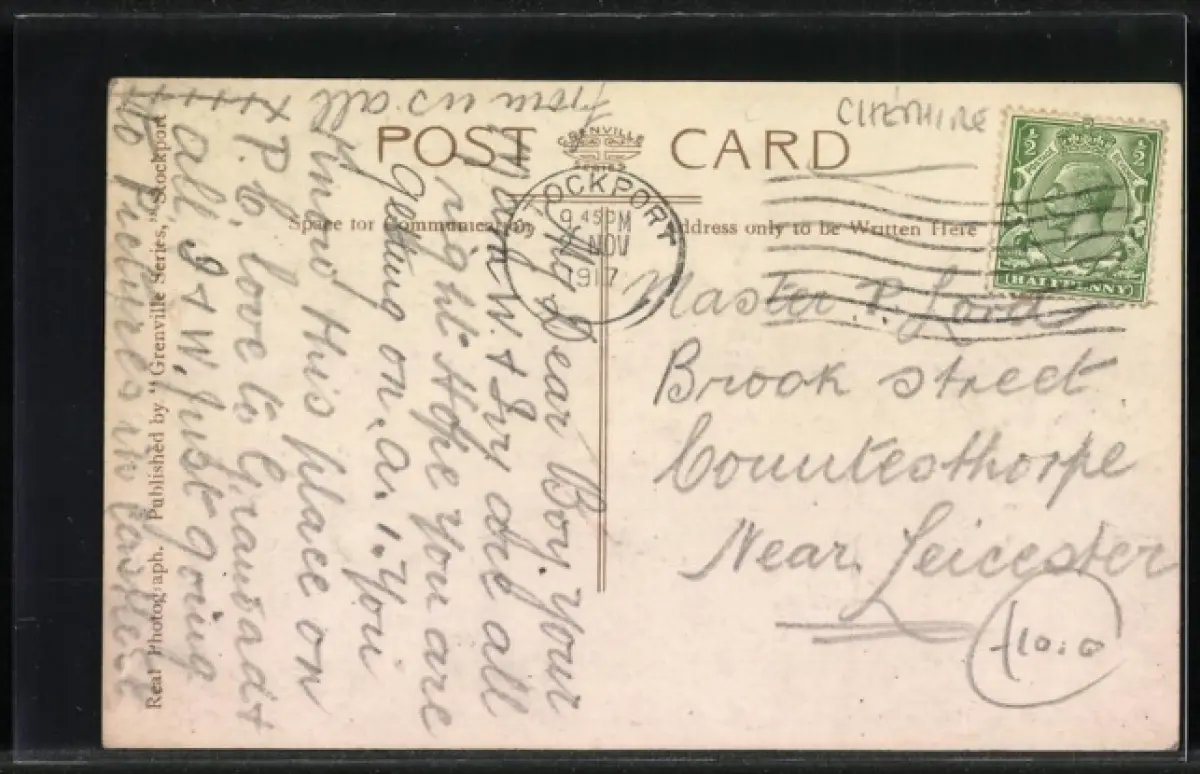 POST CARD
GRENVILLE
SERIES
CHESHIRE
½ ½
HALFPENNY
STOCKPORT
9 45 PM
NOV
1917
Space for Communication
Address only to be Written Here
Master P. Lord
Brook street
Countesthorpe
Near Leicester
£10.0
My Dear Boy. Your
W. & Ivy are all
right. Hope you are
Getting on. a. 1. You
know this place on
P. C, love to Grandad &
all, I & W. just going
to Pictures in
from us all
xxxx
Real Photograph. Published by "Grenville Series," Stockport